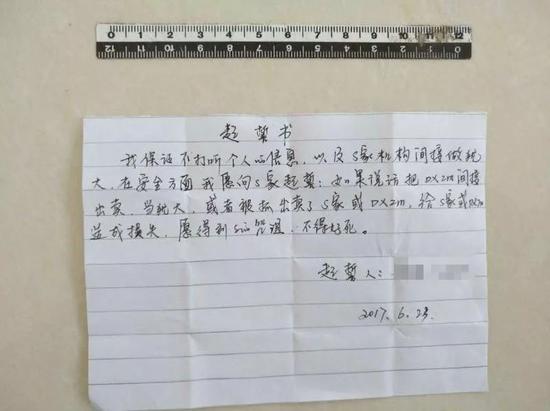 0 1 2 3 4 5 6 7 8 9 10 11 12
12 11 10 9 8 7 6 5 4 3 2 1 0
起誓书
我保证不打听个人的信息,以及S家机构间接做犹
大,在安全方面我愿向S家起誓:如果说话把DXZm间接
出卖,当犹大,或者被抓出卖了S家或DXZm,给S家或
造成损失,愿得到 咒诅,不得好死。
起誓人:
2017.6.23.